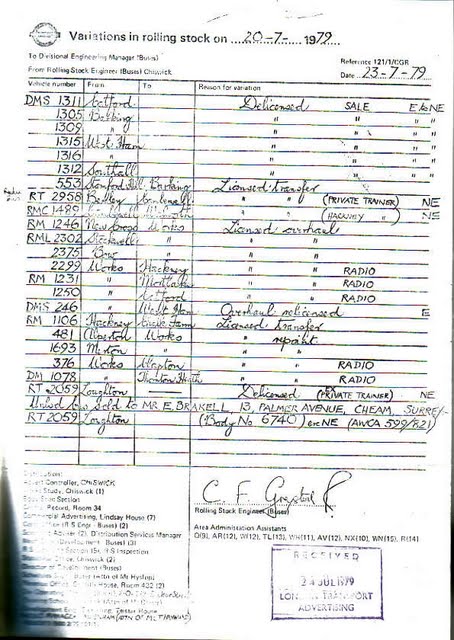 Variations in rolling stock on 20-7- 1979
To Divisional Engineering Manager (Buses)
Reference 121/1/CGR
From Rolling Stock Engineer (Buses) Chiswick
Date 23-7-79
Vehicle number From To Reason for variation
DMS 1311 Catford Delicensed SALE E to NE
1305 Barking " " "
1309 " " " "
1315 West Ham " " "
1316 " " " "
1312 Southall " " "
553 Stamford Hill Barking Licensed transfer
RT 2958 Bexley Camberwell " " (PRIVATE TRAINER) NE
RMC 1489 (HACKNEY " ) NE
RM 1246 New Cross Works Licensed overhaul
RML 2302 Stockwell " " "
2375 Bow " " "
2299 Works Hackney " " RADIO
RM 1231 " Mortlake " " RADIO
1250 " Catford " " RADIO
DMS 246 " West Ham Overhaul relicensed E
RM 1106 Hackney Chalk Farm Licensed transfer
481 Alperton Works " repaint
1693 Merton " " "
376 Works Clapton " " RADIO
DM 1078 " Thornton Heath " " RADIO
RT 2059 Loughton Delicensed (EX PRIVATE TRAINER) NE
Unlicd bus Sold to MR E. BRAKELL, 13, PALMER AVENUE, CHEAM, SURREY-
RT 2059 Loughton (Body No 6740) ex NE (AWCA 599/821)
Distribution:
Controller, CHISWICK
Study, Chiswick (1)
Section
Record, Room 34
Advertising, Lindsay House (7)
(R S Engr - Buses) (2)
Adviser (2), Distribution Services Manager
Development - Buses) (3)
Section (5), R S Inspection
Office, Chiswick (2)
of Development (Buses)
House, Room 432 (2)
C. F.
Rolling Stock Engineer (Buses)
Area Administration Assistants
Q(9), AR(12), W(12), TL(13), WH(11), AV(12), NX(10), WN(15), R(14)
RECEIVED
24 JUL 1979
LONDON TRANSPORT
ADVERTISING